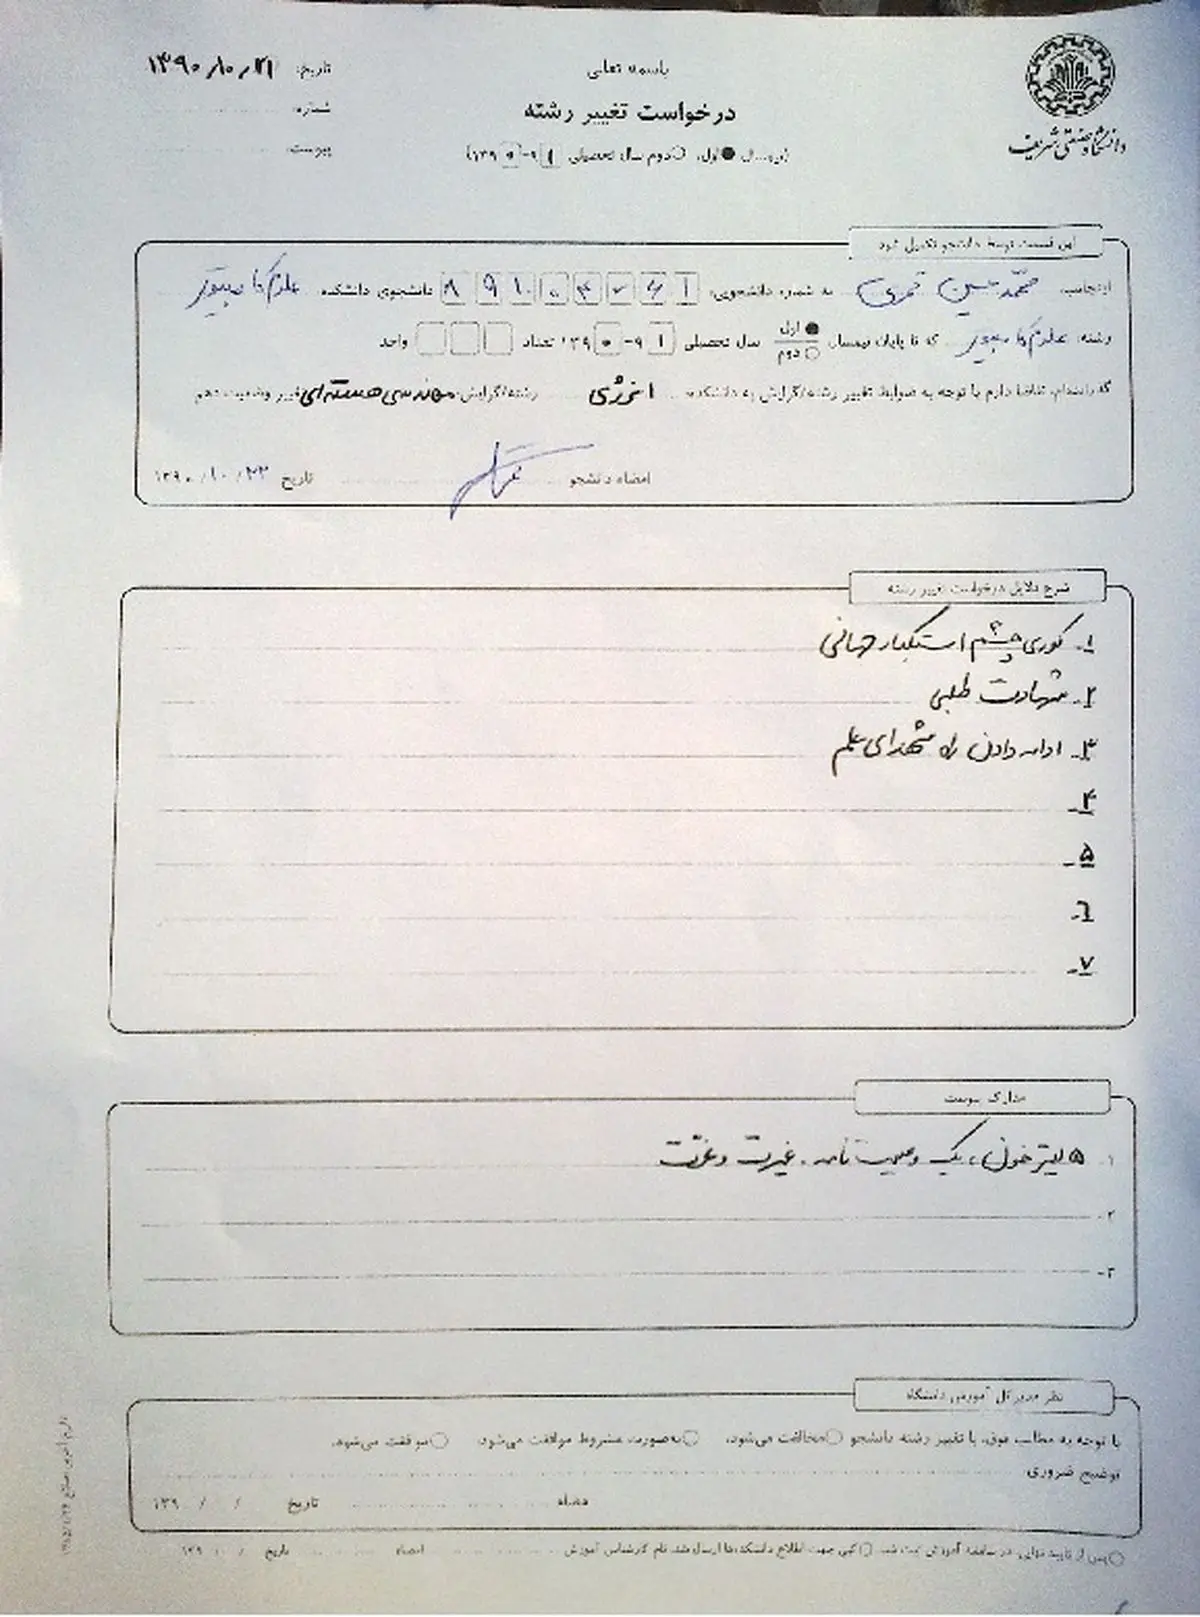 دانشگاه صنعتی شریف
باسمه تعالی
درخواست تغییر رشته
(نیمسال ●اول، ○دوم سال تحصیلی ۹۱-۱۳۹۰)
تاریخ: ۱۳۹۰/۱۰/۲۱
شماره:
پیوست:
این قسمت توسط دانشجو تکمیل شود
اینجانب محمدحسین قمری به شماره دانشجویی: دانشجوی دانشکده علوم کامپیوتر
رشته: علوم کامپیوتر که تا پایان نیمسال ●اول ○دوم سال تحصیلی ۹۱-۱۳۹۰ تعداد واحد
گذرانده‌ام، تقاضا دارم با توجه به ضوابط تغییر رشته/گرایش به دانشکده انرژی رشته/گرایش مهندسی هسته‌ای تغییر وضعیت دهم
امضاء دانشجو تاریخ ۱۳۹۰/۱۰/۲۲
شرح دلایل درخواست تغییر رشته
۱- کوری چشم استکبار جهانی
۲- شهادت طلبی
۳- ادامه دادن راه شهدای علم
۴-
۵-
۶-
۷-
مدارک پیوست
۱- ۵ لیتر خون، یک وصیت نامه، غیرت و عزت
۲-
۳-
نظر مدیر کل آموزش دانشگاه
با توجه به مطالب فوق، با تغییر رشته دانشجو ○مخالفت می‌شود، ○به‌صورت مشروط موافقت می‌شود، ○موافقت می‌شود.
توضیح ضروری:
امضاء تاریخ / / ۱۳۹۰
○پس از تایید نهایی، در سامانه آموزش ثبت شد. ○کپی جهت اطلاع دانشکده‌ها ارسال شد. نام کارشناس آموزش امضاء تاریخ / / ۱۳۹۰